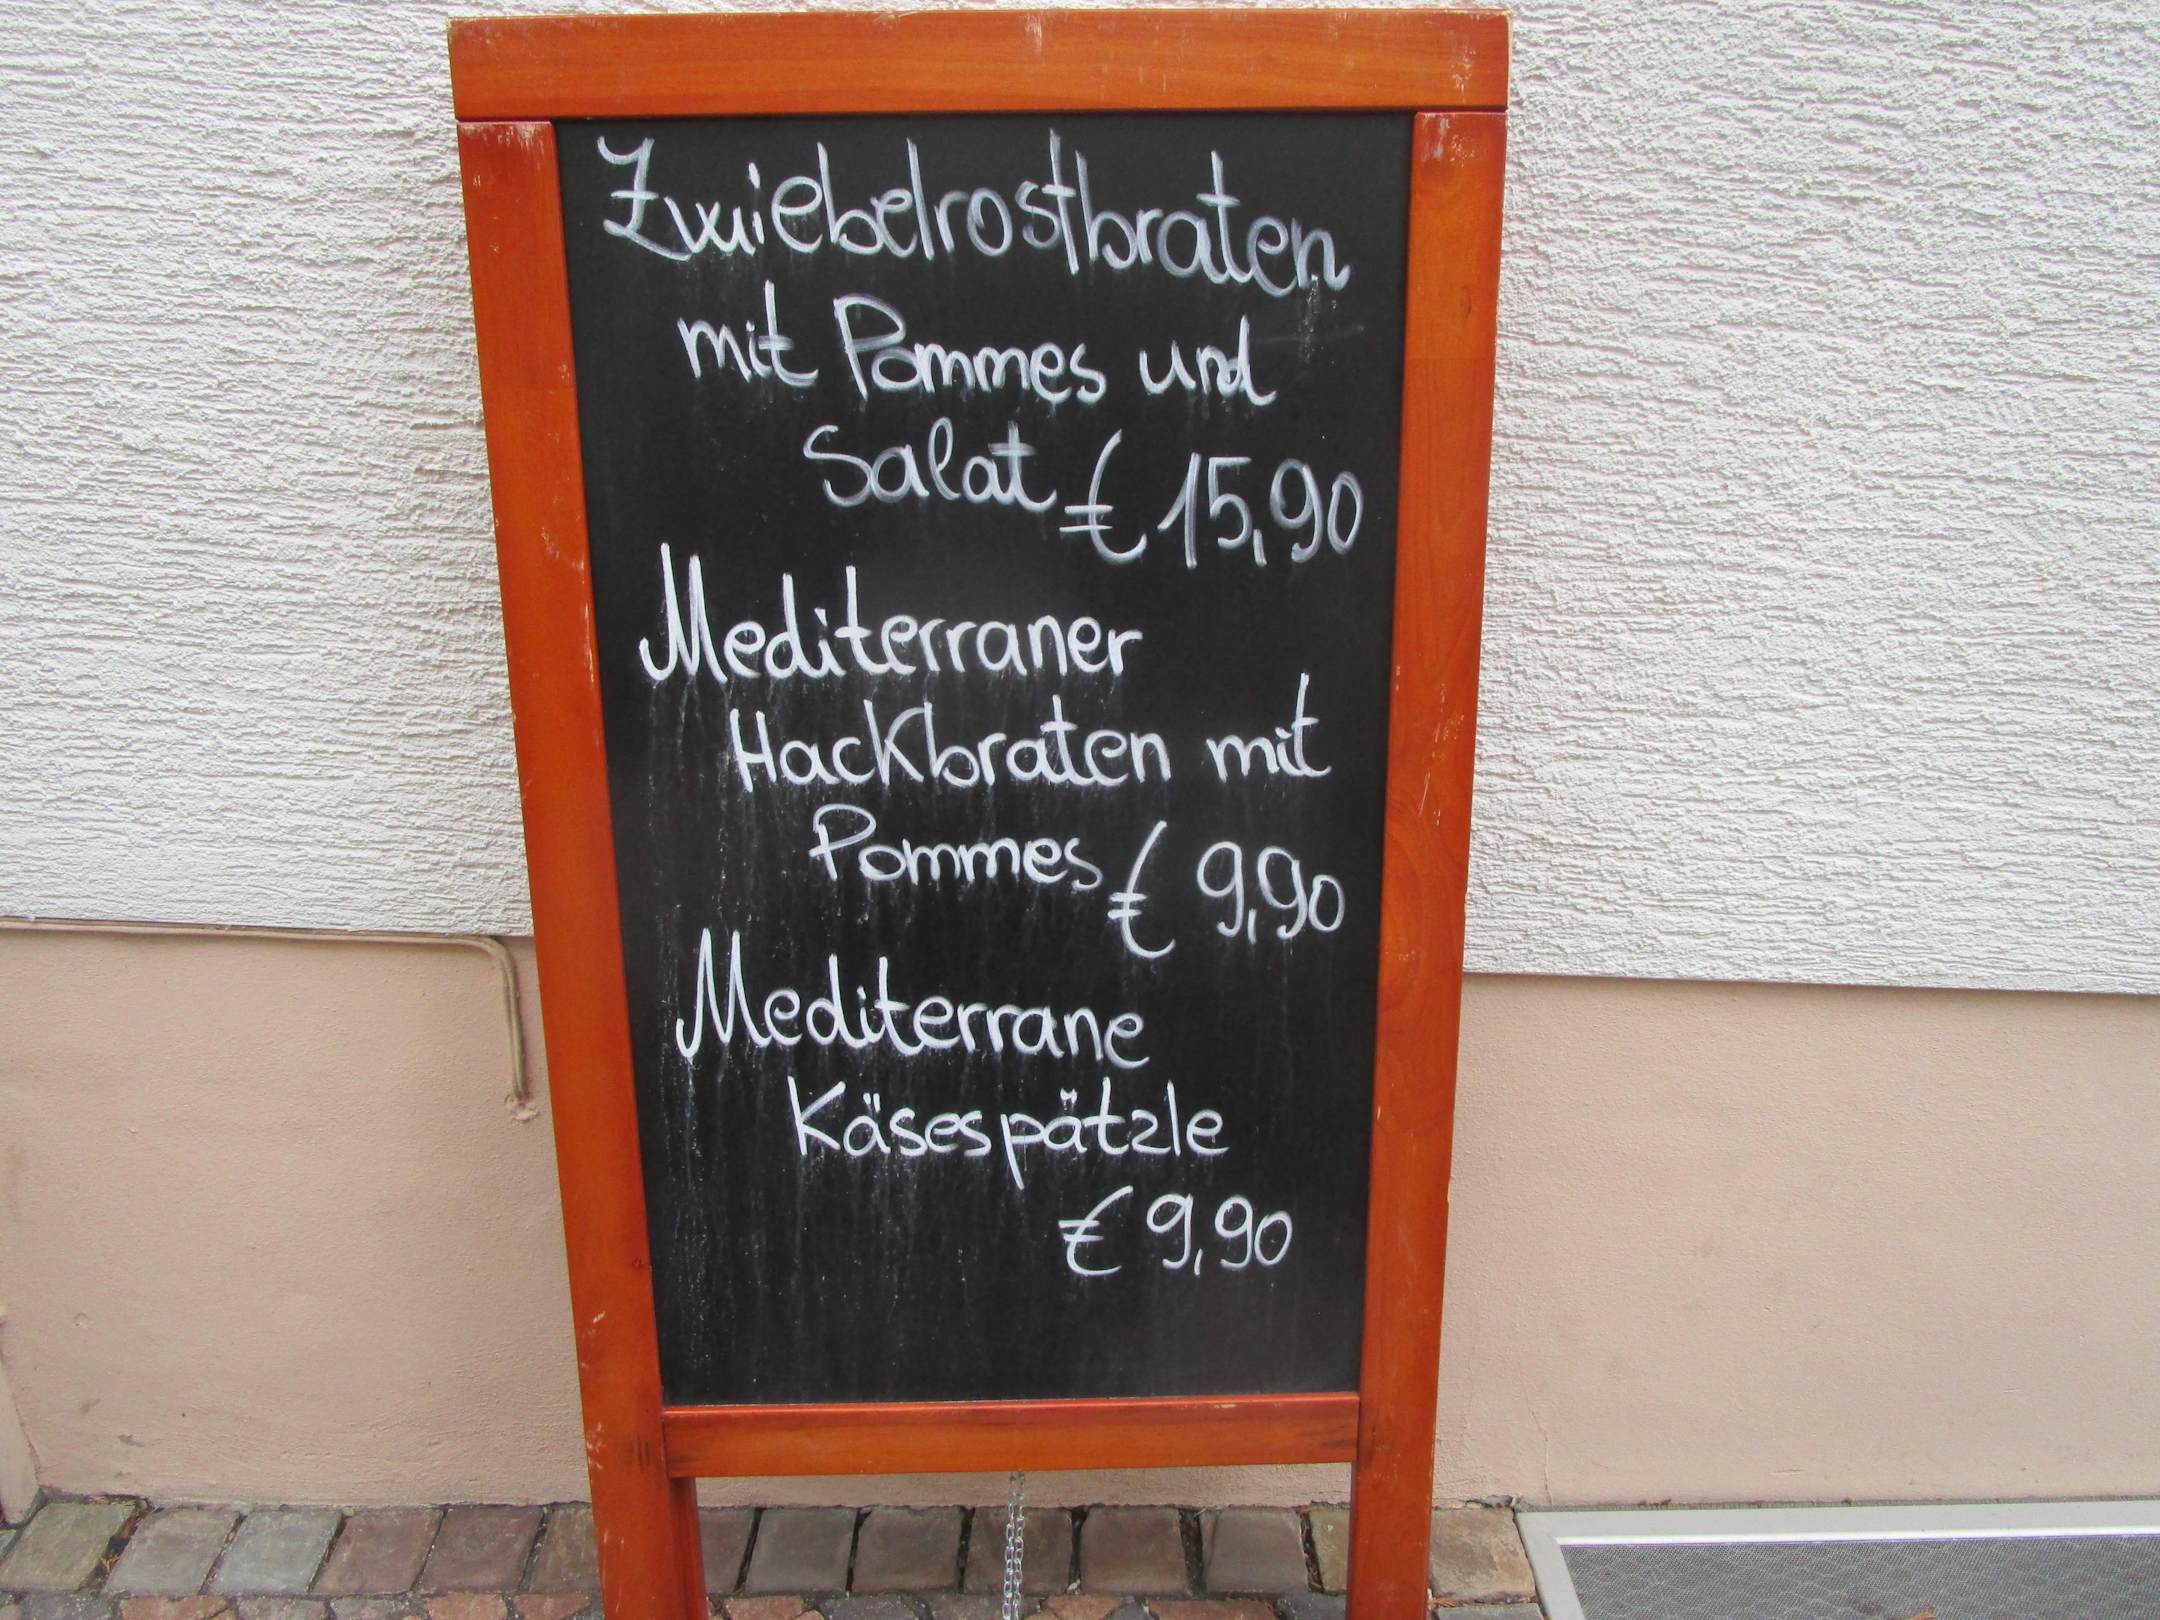 Zwiebelrostbraten
mit Pommes und
Salat € 15,90
Mediterraner
Hackbraten mit
Pommes € 9,90
Mediterrane
Käsespätzle
€ 9,90